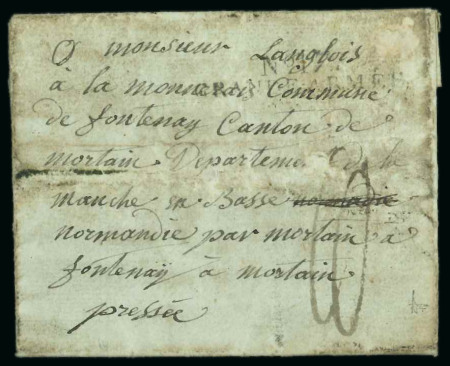 O monsieur Langlois
à la monnerais Commune
de fontenay Canton de
mortain Departement de la
manche en Basse normadie
normandie par mortain a
fontenay à mortain
pressée
GRANDE ARMÉE